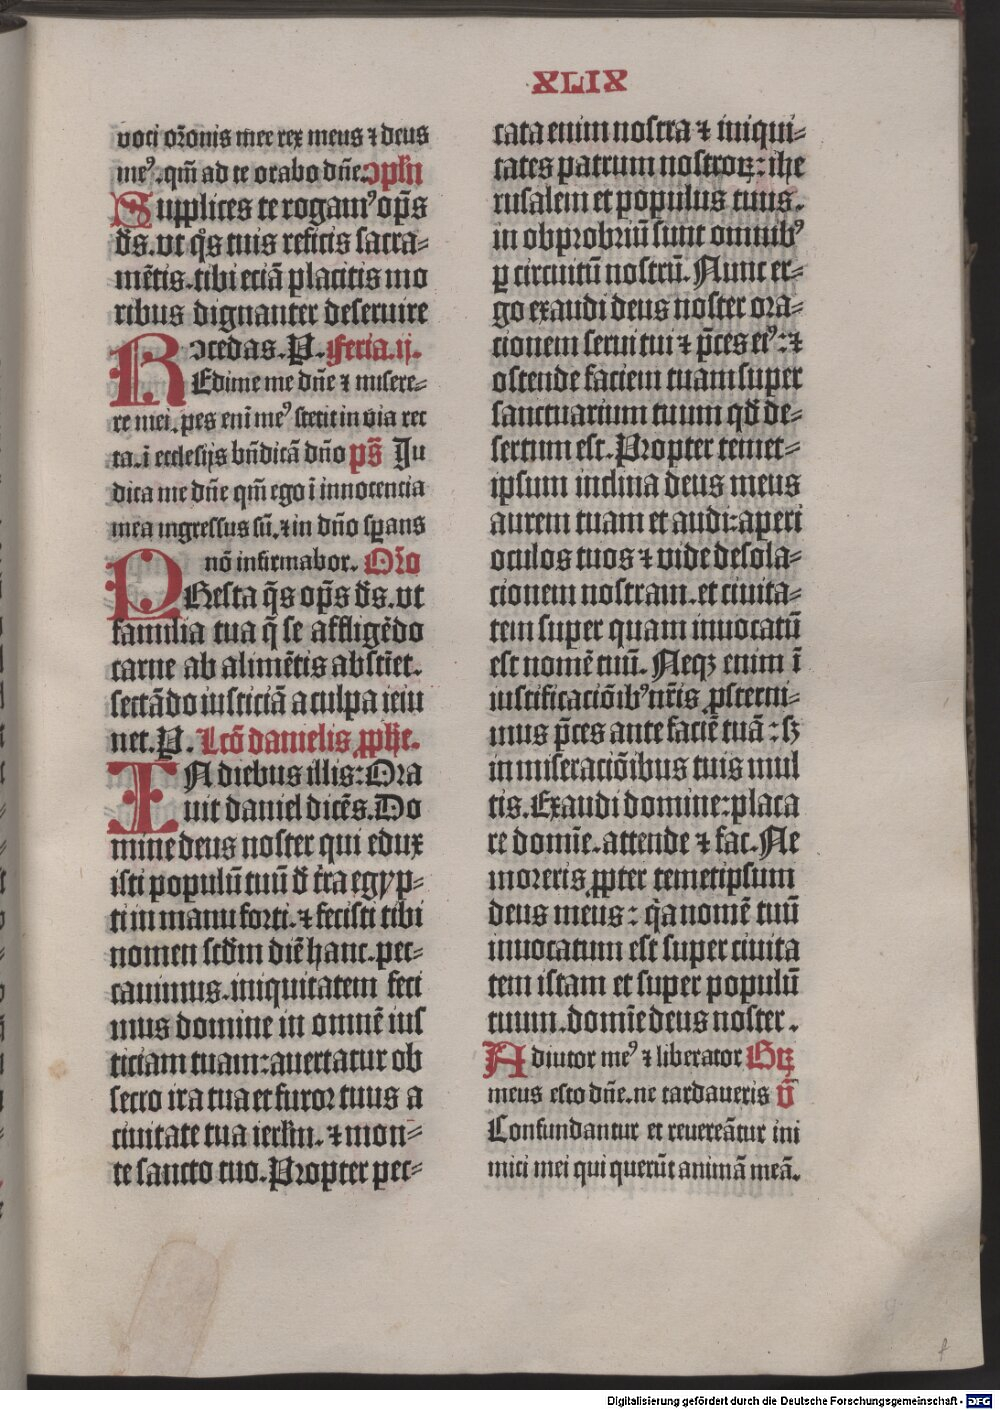 XLIX
voci or̃onis mee rex meus ⁊ deus
meꝰ. qm̄ ad te orabo dn̄e. ↄpl̄n
Supplices te rogamꝰ op̄s
d̄s. vt q̄s tuis reficis sacra⸗
mētis. tibi eciā placitis mo
ribus dignanter deseruire
ↄcedas. P. Feria. ij.
REdime me dn̄e ⁊ misere⸗
re mei. pes enī meꝰ stetit in via rec
ta. ī ecclesijs bn̄dicā dn̄o ps̄ Ju
dica me dn̄e qm̄ ego ī innocentia
mea ingressus sū. ⁊ in dn̄o sp̄ans
nō infirmabor. Or̃o
PResta q̄s op̄s d̄s. vt
familia tua q̄ se affligēdo
carne ab alimētis abstīet.
sectādo iusticiā a culpa ieiu
net. P. Lcō danielis ꝓph̄e.
IN diebus illis: Ora
uit daniel dicēs. Do
mine deus noster qui edux
isti populū tuū d̄ t̄ra egyp⸗
ti in manu forti. ⁊ fecisti tibi
nomen scd̄m diē hanc. pec⸗
cauimus. iniquitatem feci
mus domine in omnē ius
ticiam tuam: auertatur ob
secro ira tua et furor tuus a
ciuitate tua ierl̄m. ⁊ mon⸗
te sancto tuo. Propter pec⸗
cata enim nostra ⁊ iniqui⸗
tates patrum nostroꝝ: ihe
rusalem et populus tuus.
in obprobriū sunt omnibꝰ
ꝑ circuitū nostrū. Nunc er⸗
go exaudi deus noster ora⸗
cionem serui tui ⁊ p̄ces eiꝰ: ⁊
ostende faciem tuam super
sanctuarium tuum qd̄ de⸗
sertum est. Propter temet⸗
ipsum inclina deus meus
aurem tuam et audi: aperi
oculos tuos ⁊ vide desola⸗
cionem nostram. et ciuita⸗
tem super quam inuocatū
est nomē tuū. Neqꝫ enim ī
iustificaciōibꝰ nr̄is ꝓsterni⸗
mus p̄ces ante faciē tuā: sꝫ
in miseraciōibus tuis mul
tis. Exaudi domine: placa
re domīe. attende ⁊ fac. Ne
moreris ꝓpter temetipsum
deus meus: q̄a nomē tuū
inuocatum est super ciuita
tem istam et super populū
tuum. domīe deus noster.
Adiutor meꝰ ⁊ liberator Gꝝ
meus esto dn̄e. ne tardaueris v̄
Confundantur et reuereātur ini
mici mei qui querūt animā meā.
Digitalisierung gefördert durch die Deutsche Forschungsgemeinschaft - DFG